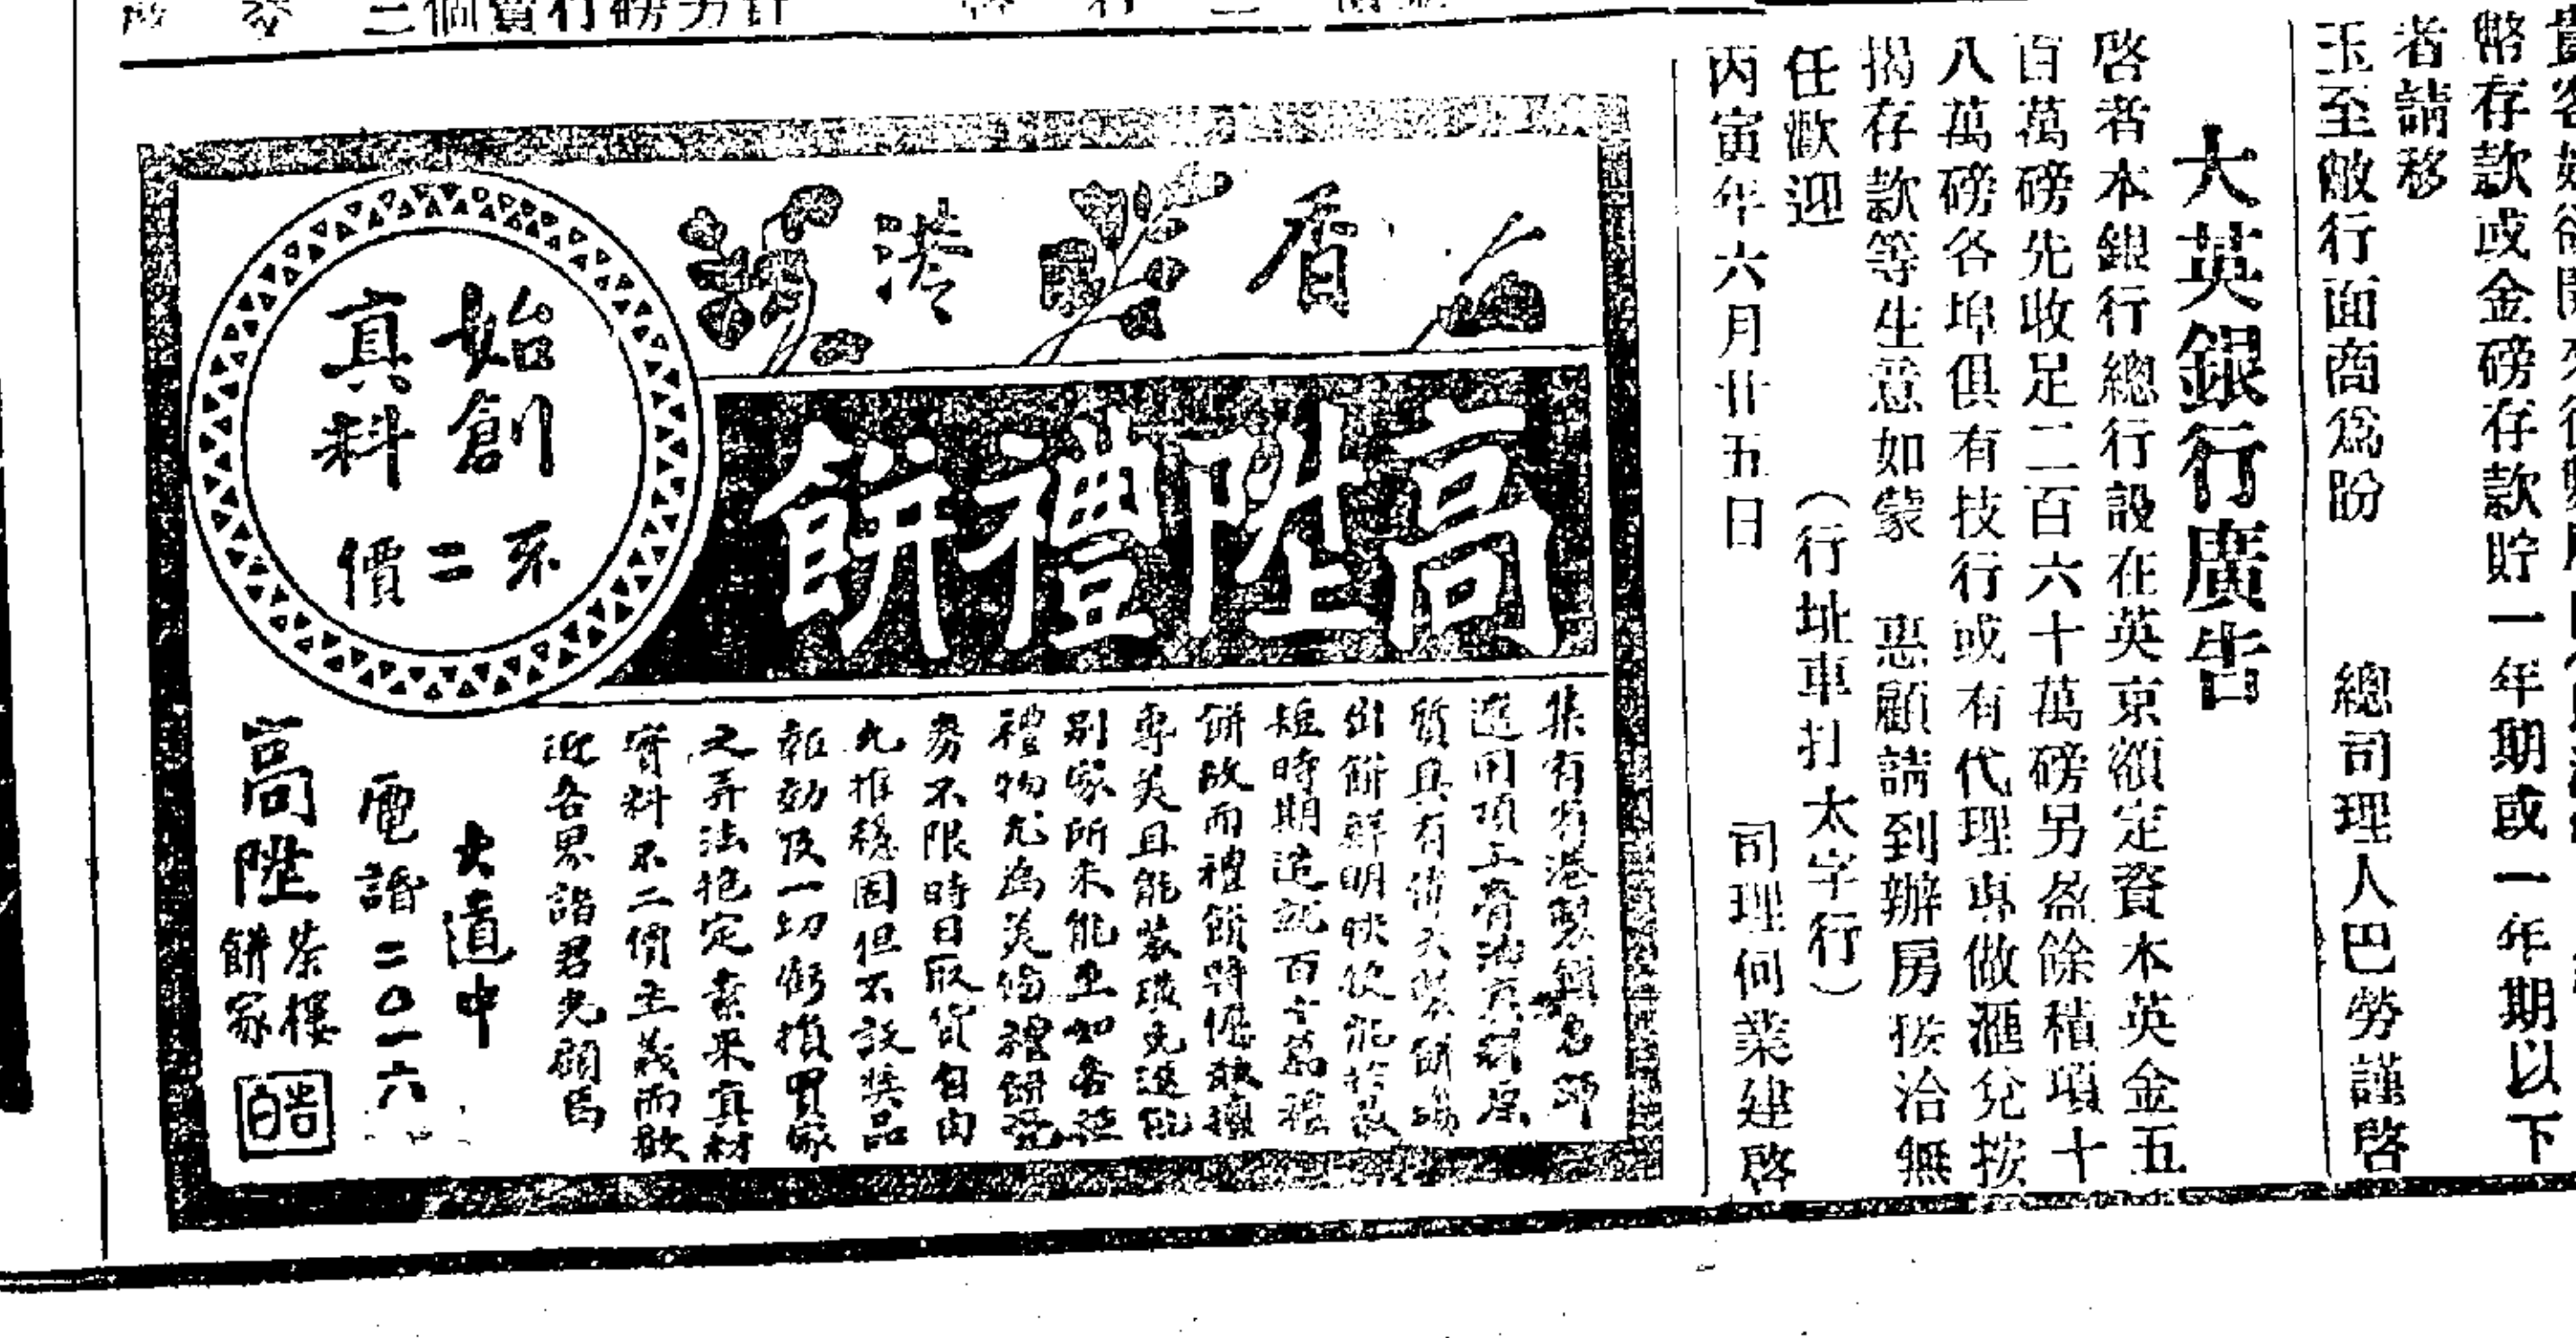 幣存款或金磅存款貯一年期或一年期以下
者請移
玉至敝行面商爲盼　總司理人巴勞謹啓
大英銀行廣告
啓者本銀行總行設在英京額定資本英金五
百萬磅先收足二百六十萬磅另盈餘積項十
八萬磅各埠俱有技行或有代理專做滙兌按
揭存款等生意如蒙　惠顧請到辦房接洽無
任歡迎　（行址車打太字行）
丙寅年六月廿五日　司理何業建啓
香港
高陞禮餅
始創
真料
不二價
集有省港製餅名師
選用頂上膏油真料原
質具有偉大製餅場
出餅鮮明快使能於最
短時期造就百十萬禮
餅故而禮餅特優馳擅
專美且能裝璜先進能
別家所未能至如各種
禮物尤為美備禮餅混
券不限時日取貨自由
尤推穩固但不設獎品
報効及一切術損買家
之弄法抱定素來真材
實料不二價主義而歡
迎各界諸君光顧焉
大道中
電話二〇一六
高陞
茶樓
餅家